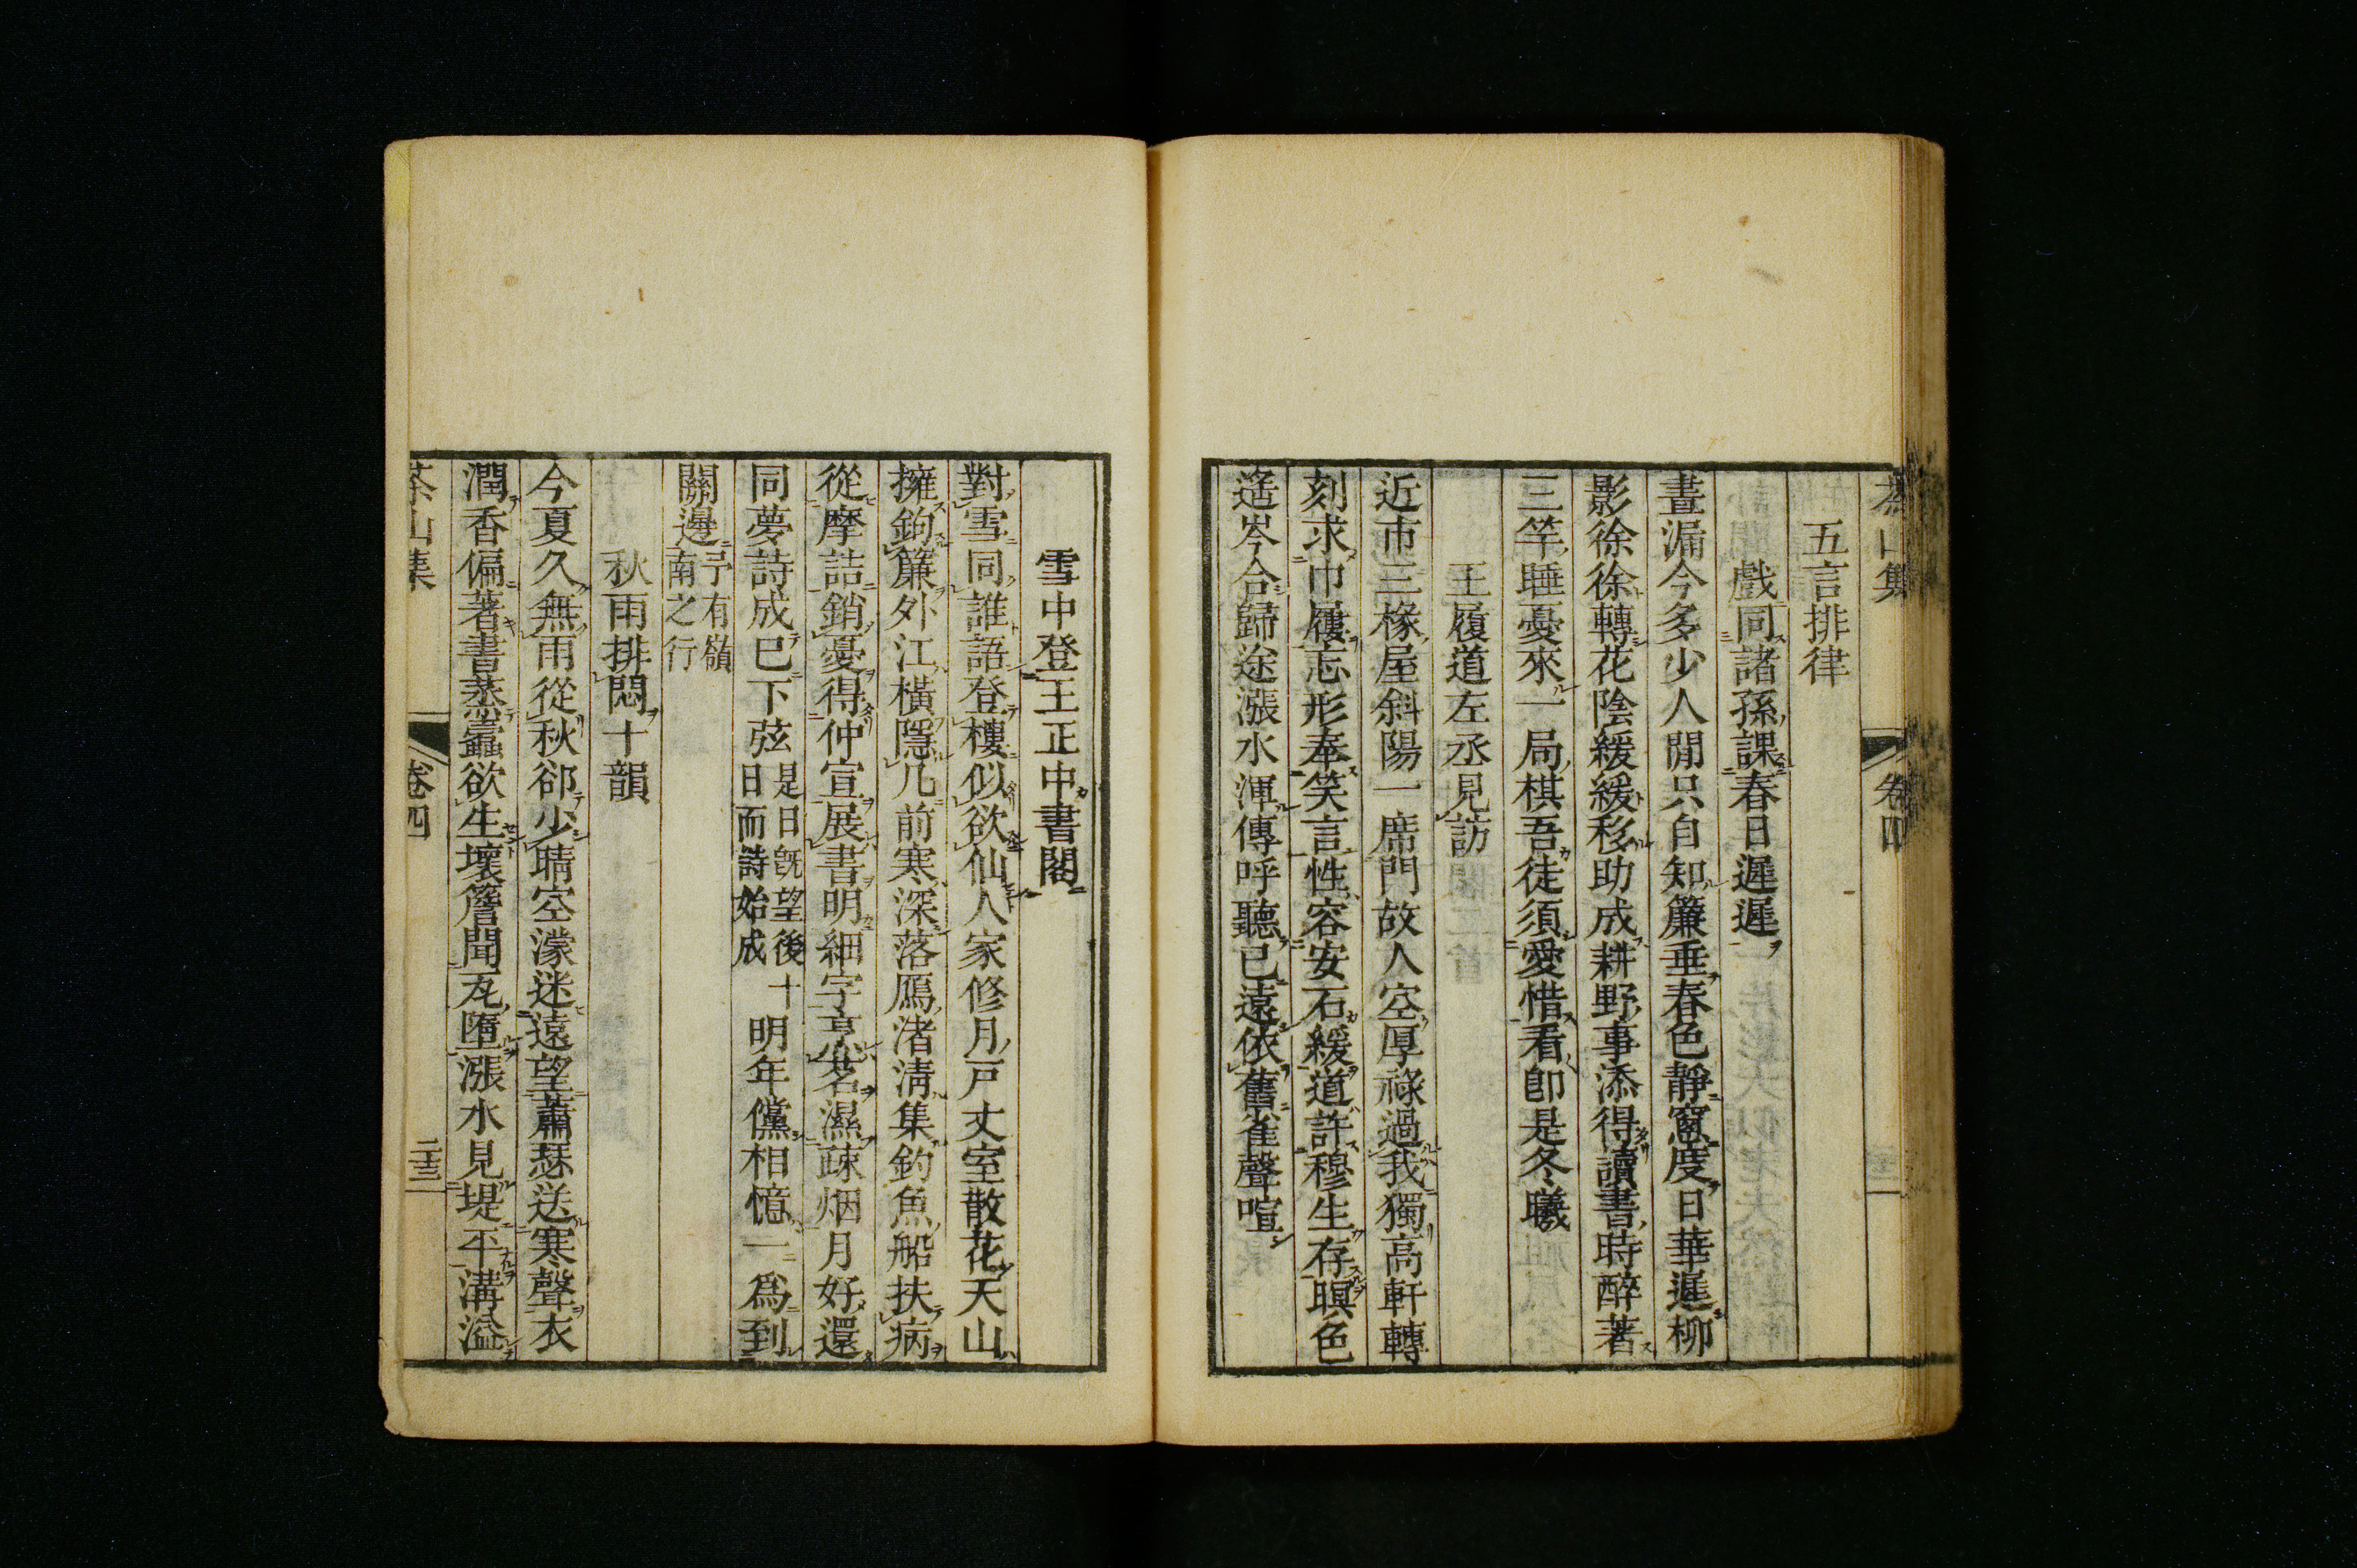 茶山集 卷四
五言排律
戲同諸孫課春日遲遲
晝漏今多少人閒只自知簾垂春色靜窻度日華遲柳
影徐徐轉花陰緩緩移助成耕野事添得讀書時醉著
三竿睡憂來一局棋吾徒須愛惜看卽是冬曦
王履道左丞見訪
近市三椽屋斜陽一席門故人空厚祿過我獨高軒轉
刻求巾屨忘形奉笑言性容安石緩道許穆生存暝色
遥岑合歸途漲水渾傳呼聽已遠依舊雀聲喧
雪中登王正中書閣
對雪同誰語登樓似欲仙人家修月戸丈室散花天山
擁鉤簾外江橫隱几前寒深落鴈渚淸集釣魚船扶病
從摩詰銷憂得仲宣展書明細字烹茗濕疎烟月好還
同夢詩成巳下弦是日旣望後十日而詩始成明年儻相憶一爲到
關邊予有嶺南之行
秋雨排悶十韻
今夏久無雨從秋郤少晴空濛迷遠望蕭瑟送寒聲衣
潤香偏著書蒸蠧欲生壞簷聞瓦墮漲水見堤平溝溢
茶山集 卷四 二十三